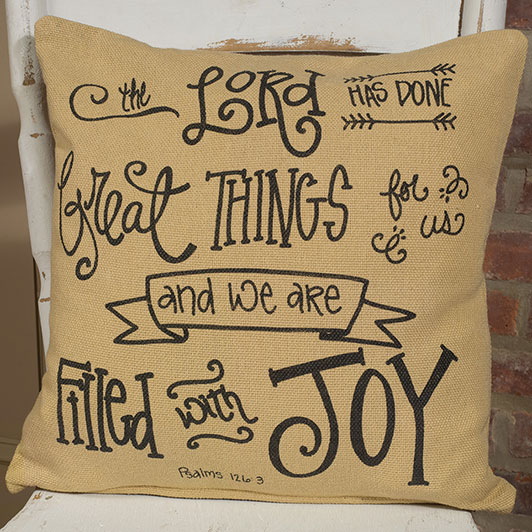 the LORD HAS DONE
Great THINGS for us
and we are
Filled with JOY
Psalms 126 3